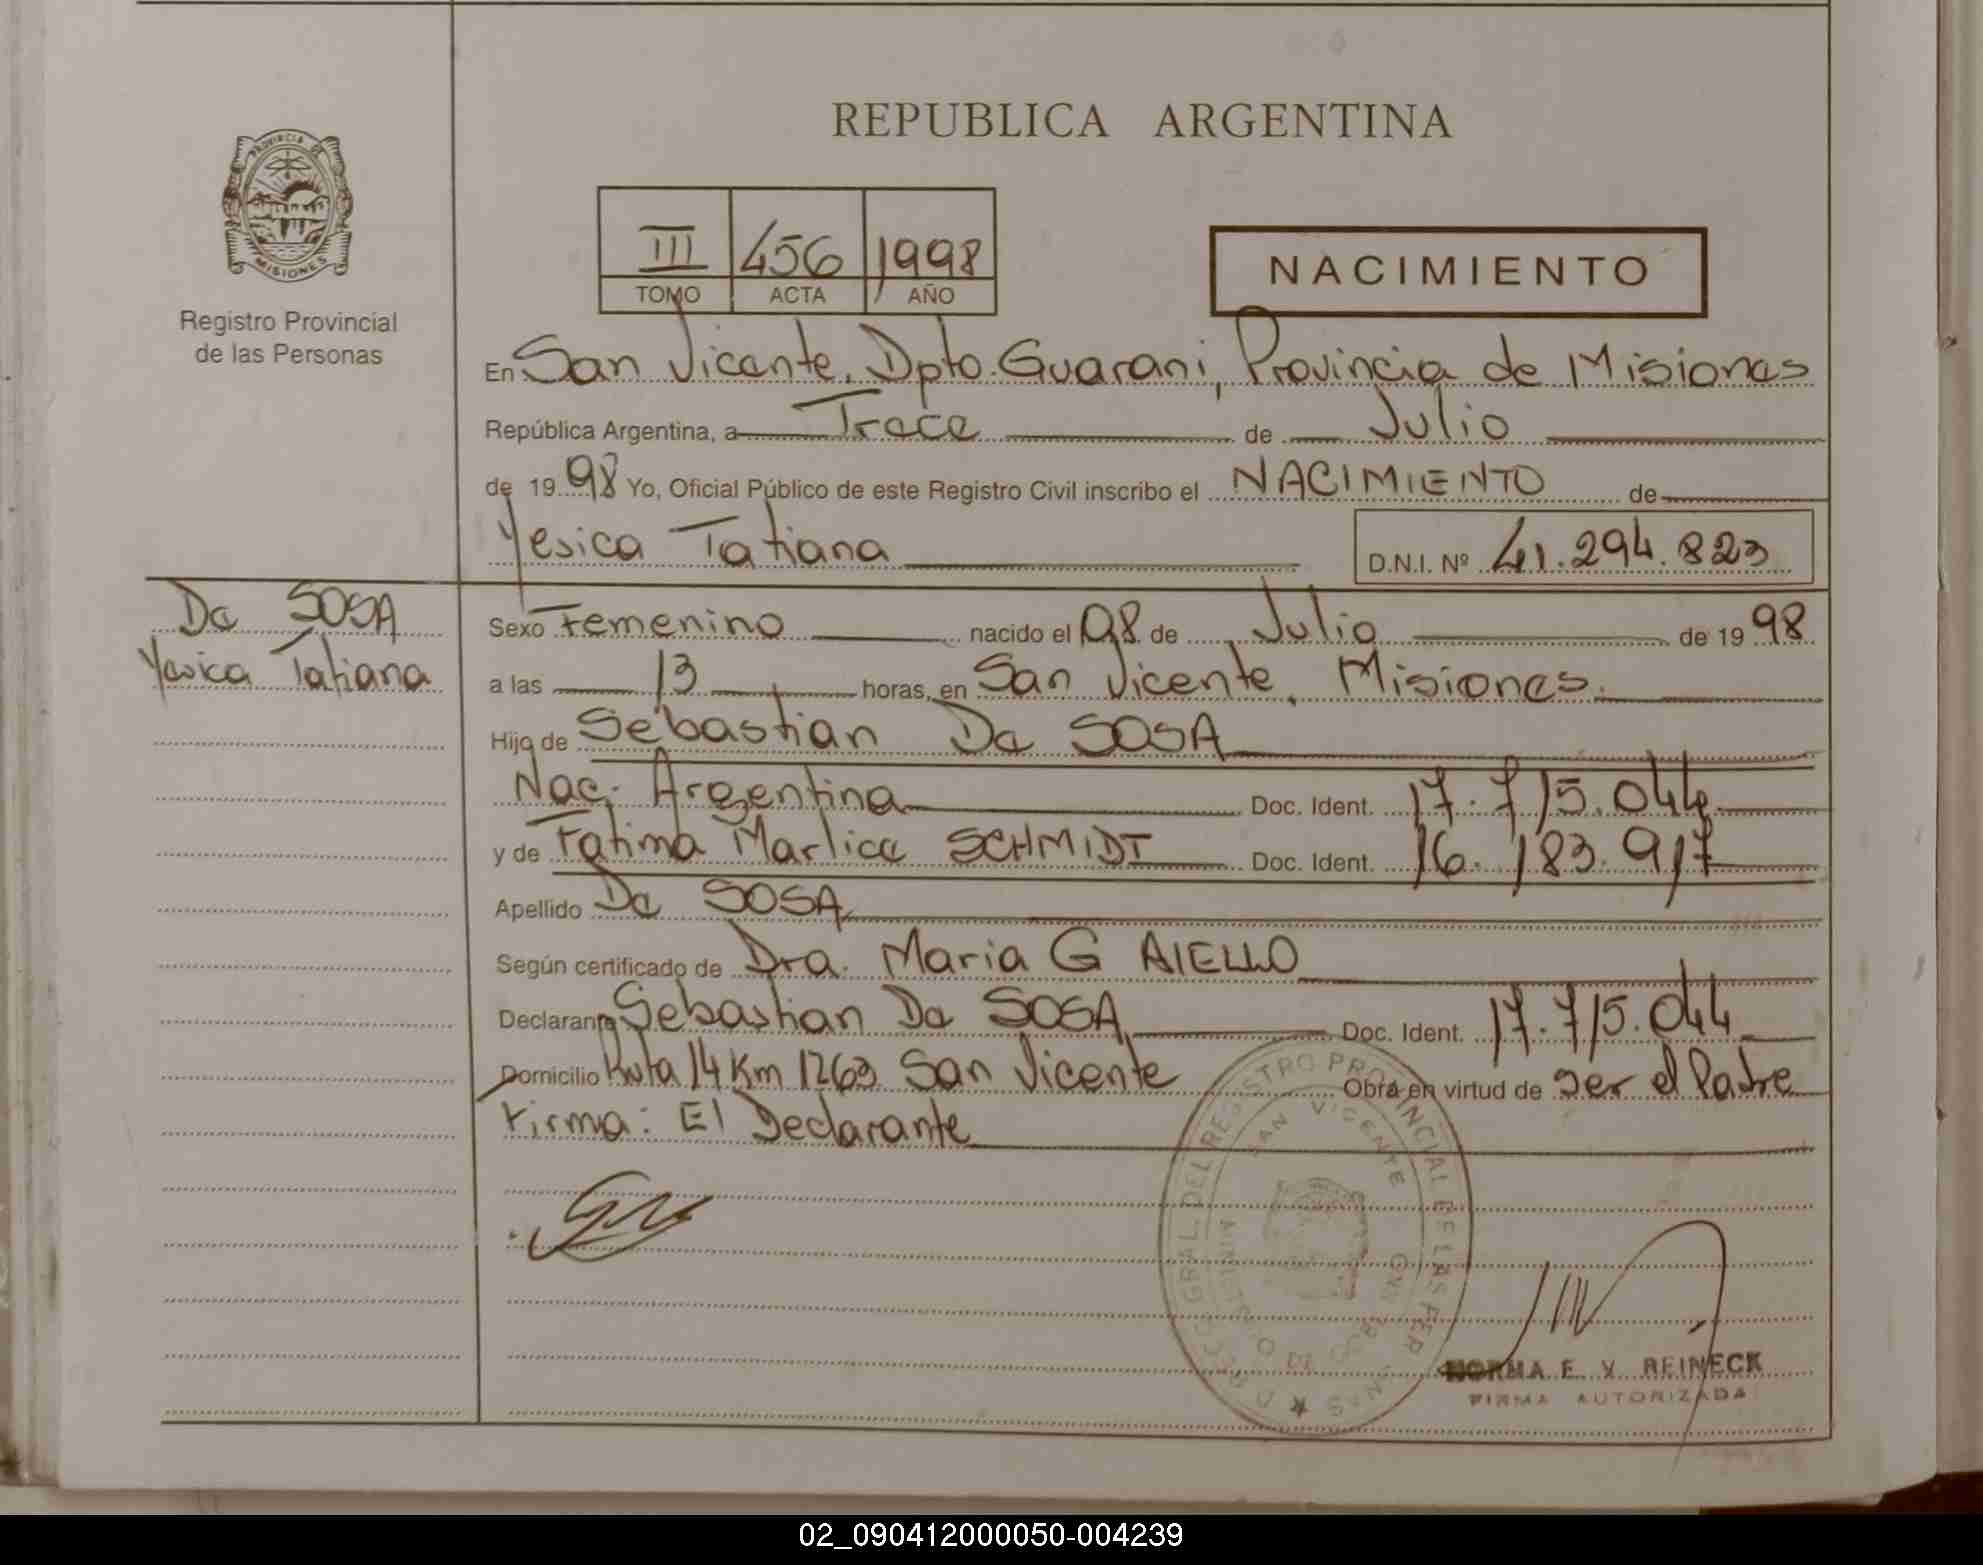 REPUBLICA ARGENTINA
PROVINCIA DE
MISIONES
Registro Provincial
de las Personas
III 456 1998
TOMO ACTA AÑO
NACIMIENTO
En San Vicente, Dpto. Guarani, Provincia de Misiones
República Argentina, a Trece de Julio
de 1998 Yo, Oficial Público de este Registro Civil inscribo el NACIMIENTO de
Yesica Tatiana D.N.I. Nº 41.294.823
Da SOSA
Yesica Tatiana
Sexo Femenino nacido el 08 de Julio de 1998
a las 13 horas, en San Vicente, Misiones.
Hijo de Sebastian Da SOSA
Nac. Argentina Doc. Ident. 17.715.044
y de Fatima Marlice SCHMIDT Doc. Ident. 16.183.917
Apellido Da SOSA
Según certificado de Dra. Maria G AIELLO
Declarante Sebastian Da SOSA Doc. Ident. 17.715.044
Domicilio Ruta 14 Km 1263 San Vicente Obra en virtud de ser el Padre
Firma: El Declarante
GRAL. DEL REGISTRO PROVINCIAL DE LAS PERSONAS
SAN VICENTE
NORMA E. V. REINECK
FIRMA AUTORIZADA
02_090412000050-004239